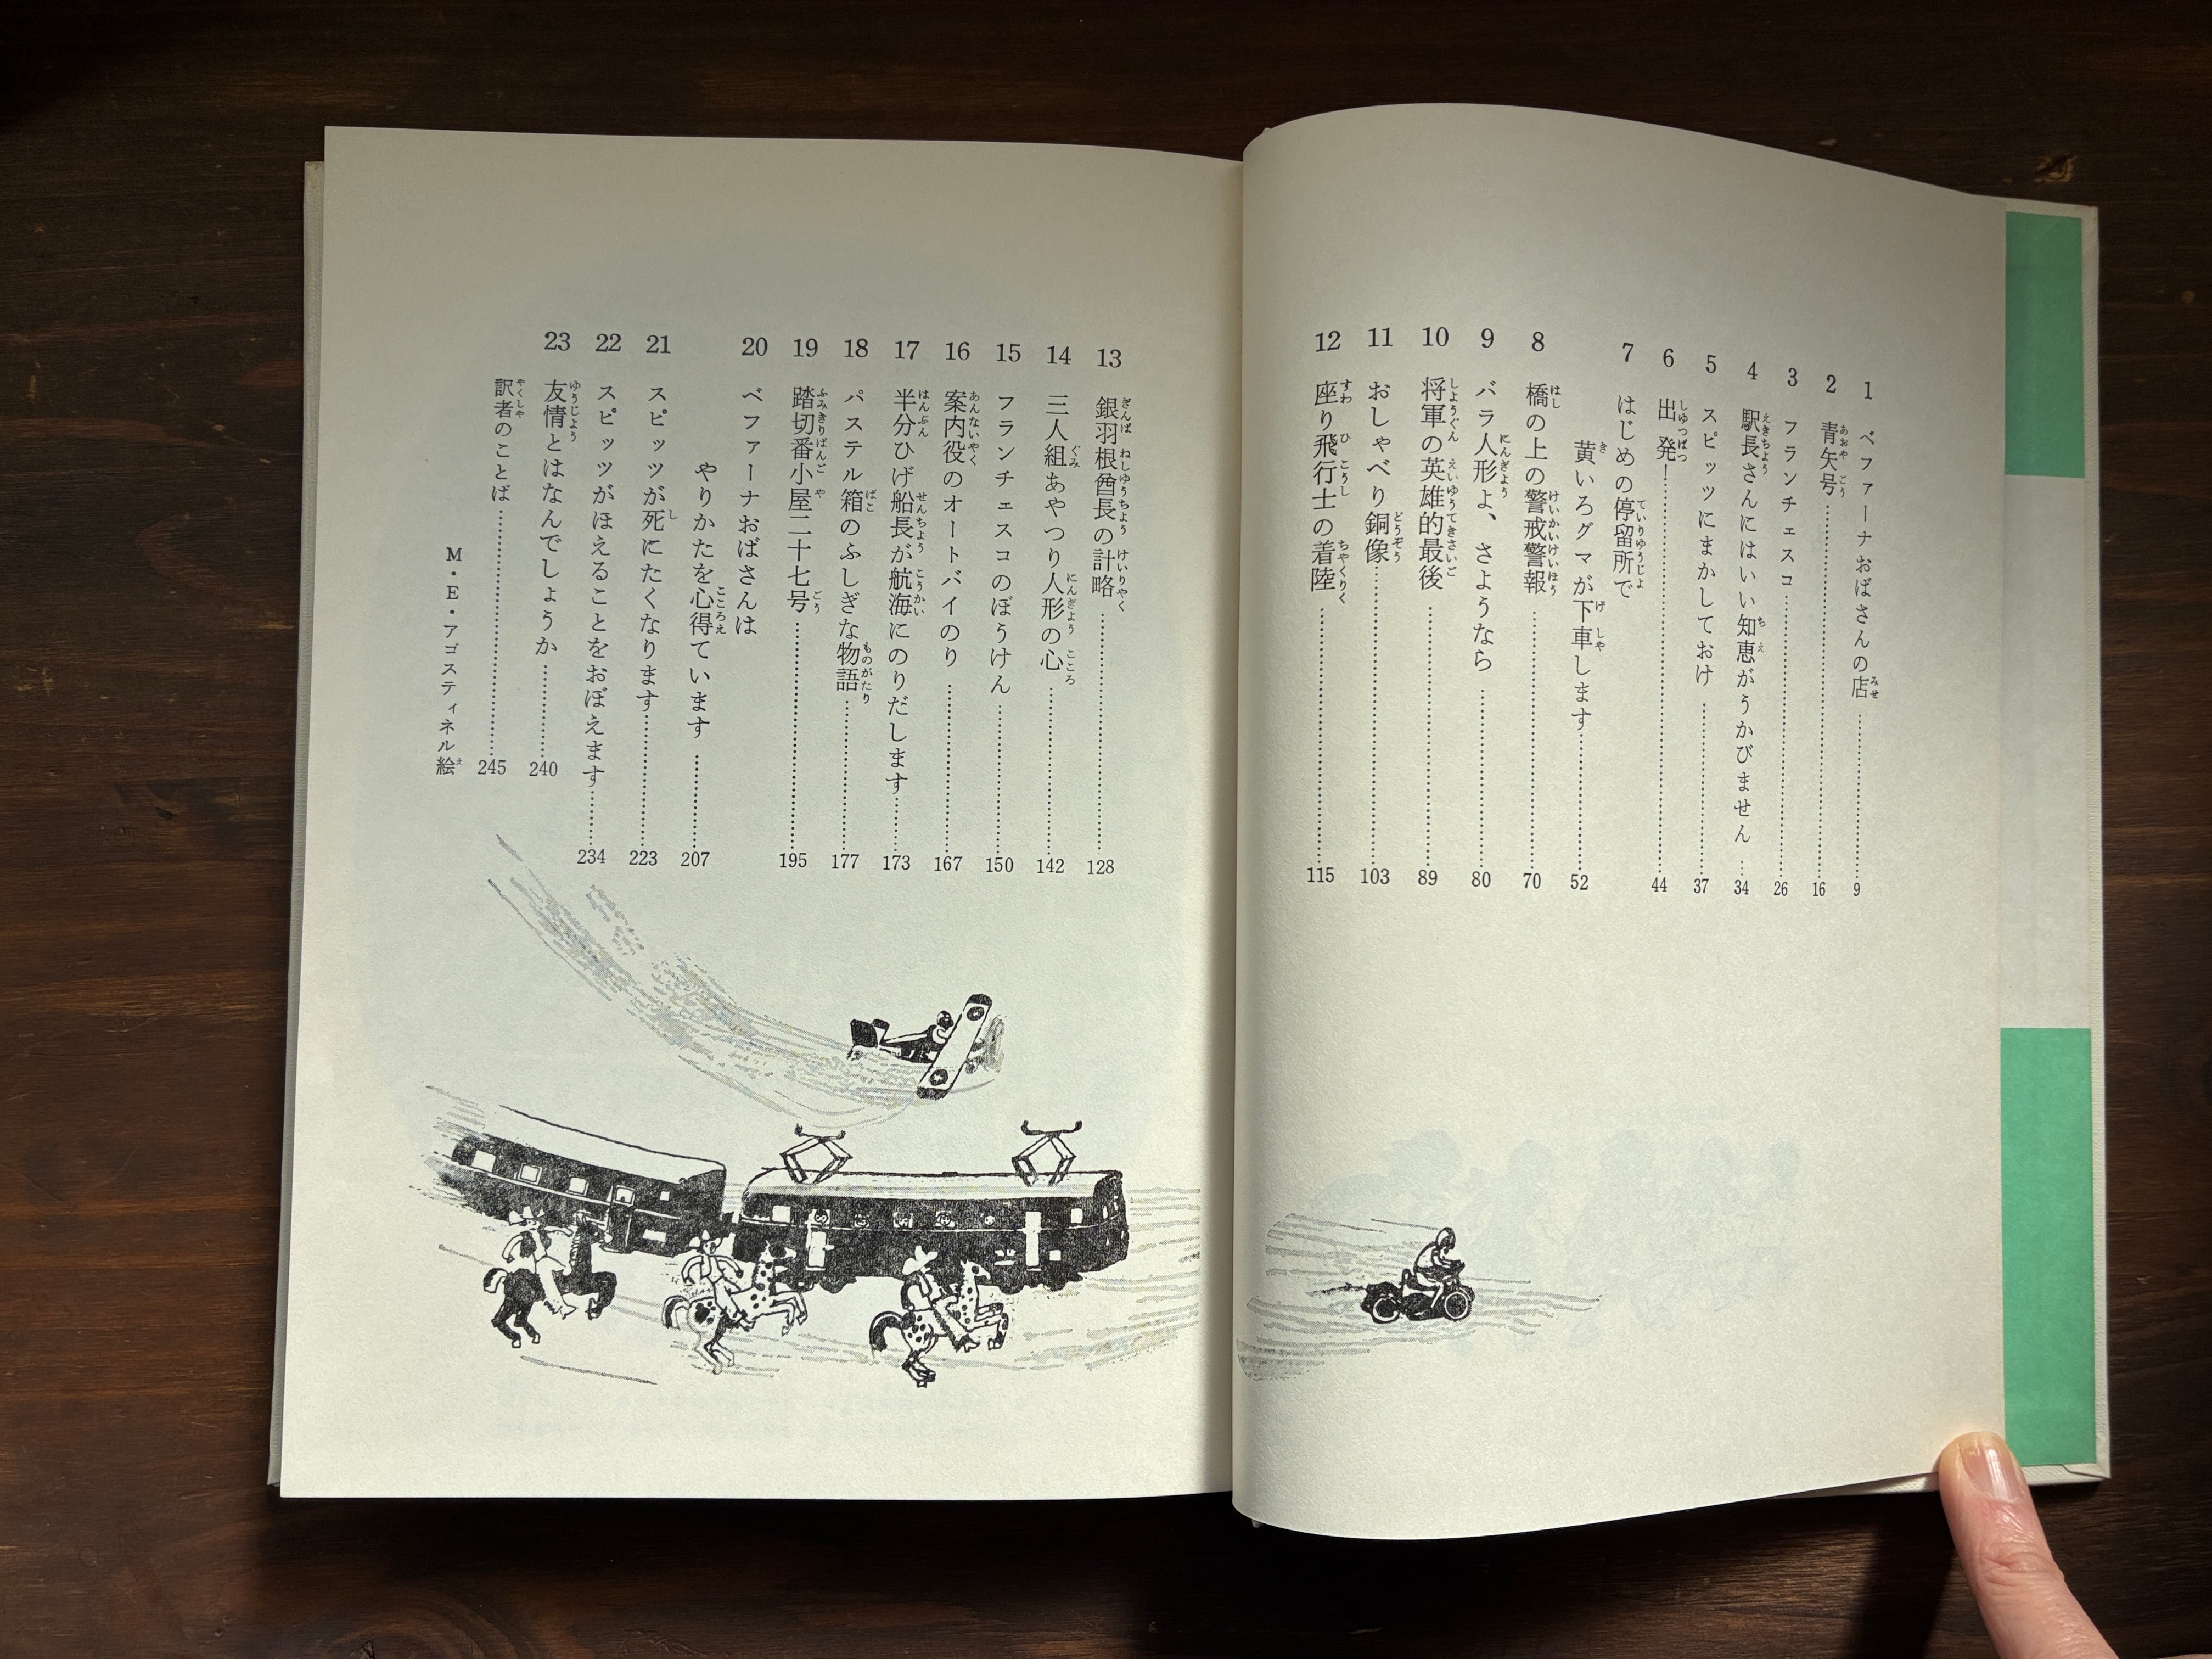 1 ベファーナおばさんの店……9
2 青矢号……16
3 フランチェスコ……26
4 駅長さんにはいい知恵がうかびません……34
5 スピッツにまかしておけ……37
6 出発！……44
7 はじめの停留所で
黄いろグマが下車します……52
8 橋の上の警戒警報……70
9 バラ人形よ、さようなら……80
10 将軍の英雄的最後……89
11 おしゃべり銅像……103
12 座り飛行士の着陸……115
13 銀羽根酋長の計略……128
14 三人組あやつり人形の心……142
15 フランチェスコのぼうけん……150
16 案内役のオートバイのり……167
17 半分ひげ船長が航海にのりだします……173
18 パステル箱のふしぎな物語……177
19 踏切番小屋二十七号……195
20 ベファーナおばさんは
やりかたを心得ています……207
21 スピッツが死にたくなります……223
22 スピッツがほえることをおぼえます……234
23 友情とはなんでしょうか……240
訳者のことば……245
M・E・アゴスティネル絵